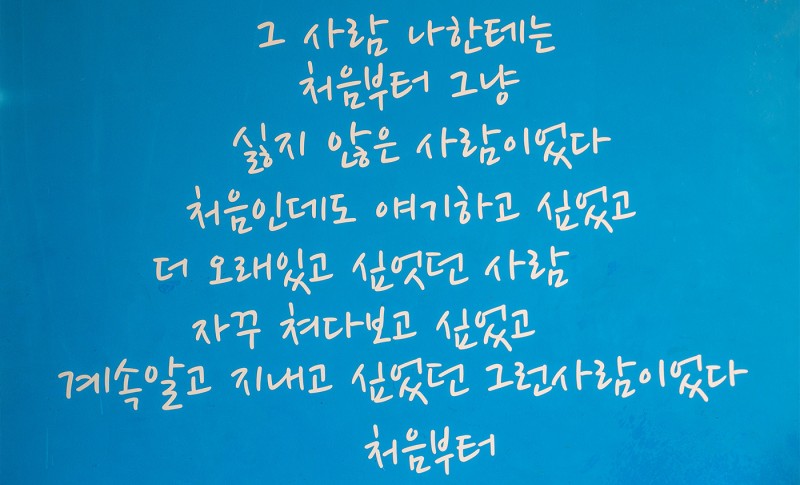 그 사람 나한테는
처음부터 그냥
싫지 않은 사람이었다
처음인데도 얘기하고 싶었고
더 오래있고 싶엇던 사람
자꾸 쳐다보고 싶었고
계속알고 지내고 싶었던 그런사람이었다
처음부터